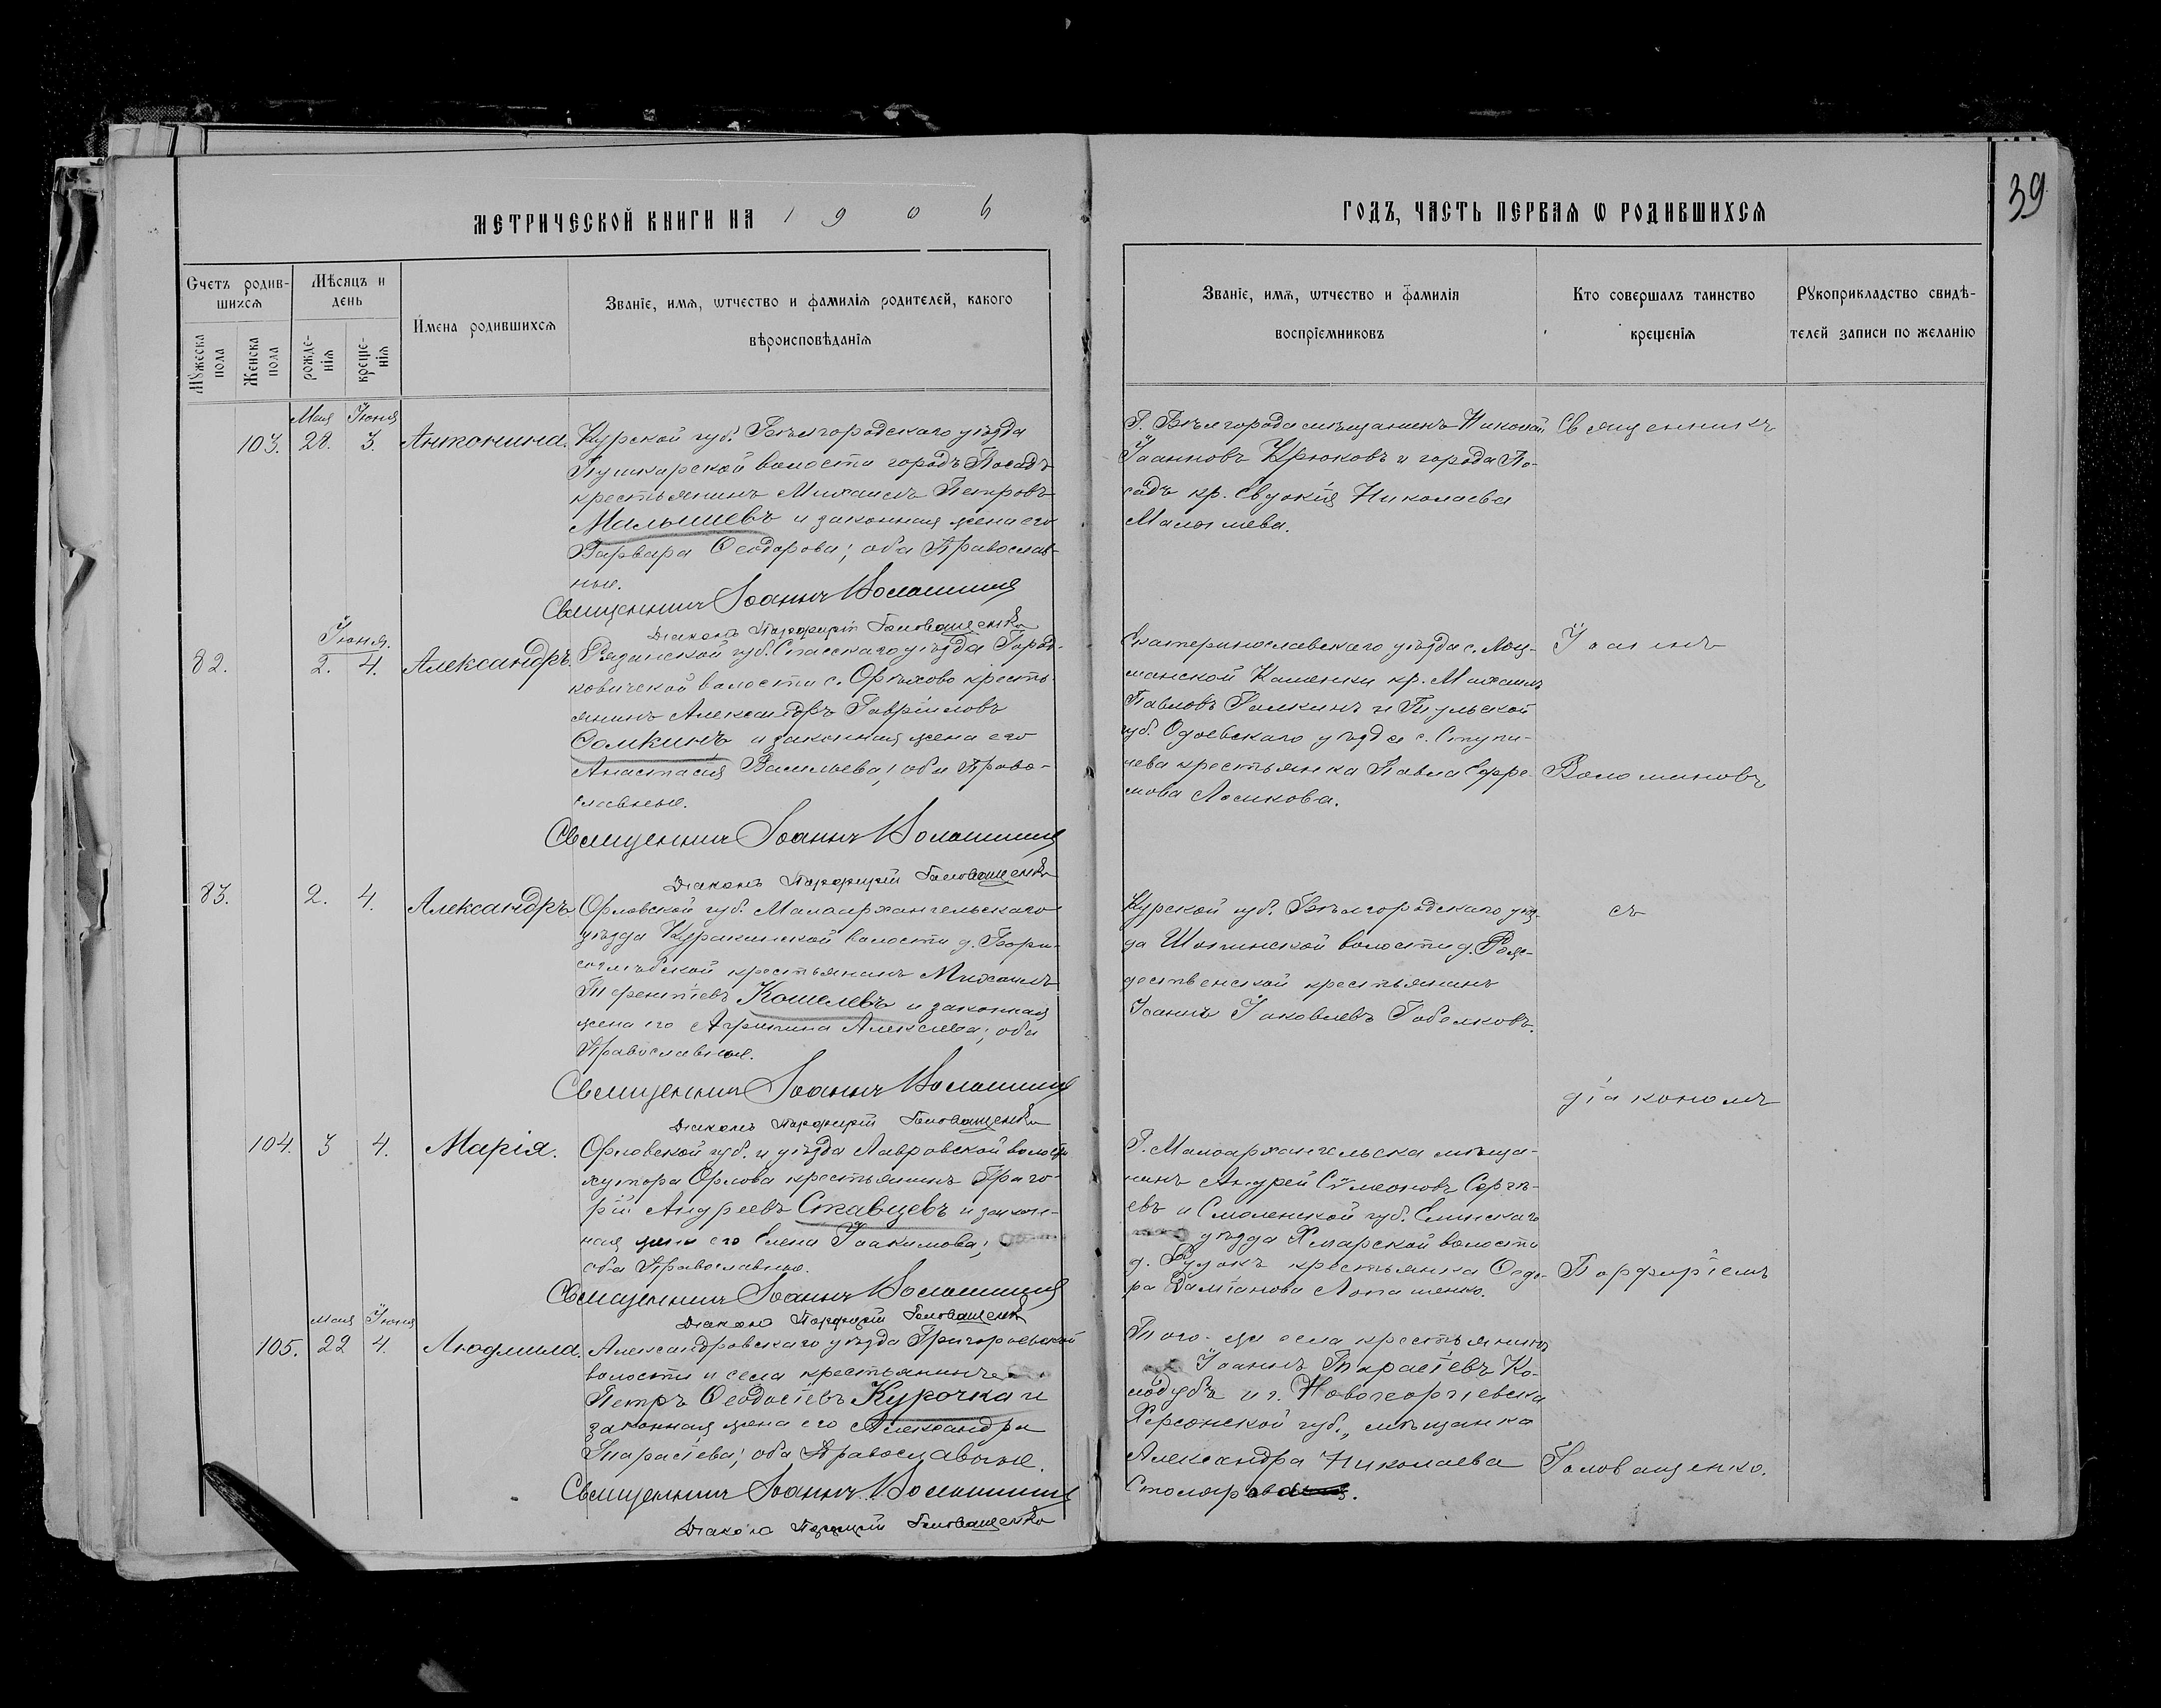 39
МЕТРИЧЕСКОЙ КНИГИ НА 1906
ГОДЪ, ЧАСТЬ ПЕРВАЯ Ѡ РОДИВШИХСЯ
Счетъ родив-
шихся
Мꙋжеска пола
Женска пола
Мѣсяцъ и
день
рожде-
нія
креще-
нія
Имена родившихся
Званіе, имя, ѿчество и фамилія родителей, какого
вѣроисповѣданія
Званіе, имя, ѿчество и фамилія
воспріемниковъ
Кто совершалъ таинство
крещенія
Рꙋкоприкладство свидѣ-
телей записи по желанію
Мая Іюня
103. 28. 3. Антонина.
Курской губ. Бѣлгородскаго уѣзда
Пушкарской волости городъ Посадъ
крестьянинъ Михаилъ Петровъ
Малышевъ и законная жена его
Варвара Ѳеодорова; оба Православ-
ные.
Священникъ Іоаннъ Волошиновъ
Діаконъ Порфирій Головащенко
Г. Бѣлгорода мѣщанинъ Николай
Іоанновъ Крюковъ и города По-
садъ кр. Евдокія Николаева
Малышева.
Священникъ
Іюня.
82. 2. 4. Александръ.
Рязанской губ. Спасскаго уѣзда Город-
ковической волости с. Орѣхово кресть-
янинъ Александръ Гавріиловъ
Сомкинъ и законная жена его
Анастасія Васильева; оба Право-
славные.
Священникъ Іоаннъ Волошиновъ
Діаконъ Порфирій Головащенко
Екатеринославскаго уѣзда с. Лоц-
манской Каменки кр. Михаилъ
Павловъ Галкинъ и Тульской
губ. Одоевскаго уѣзда с. Ступи-
чева крестьянка Павла Ефре-
мова
Іоаннъ
Волошиновъ
83. 2. 4. Александръ.
Орловской губ. Малоархангельскаго
уѣзда Куракинской волости д. Бори-
соглѣбской крестьянинъ Михаилъ
Терентіевъ Кошелевъ и законная
жена его Агрипина Алексіева; оба
Православные.
Священникъ Іоаннъ Волошиновъ
Діаконъ Порфирій Головащенко
Курской губ. Бѣлгородскаго уѣз-
да Шопинской волости д. Рож-
дественской крестьянинъ
Іоаннъ Іаковлевъ Гобелковъ.
съ
діакономъ
104. 3 4. Марія.
Орловской губ. и уѣзда Лавровской волости
хутора Орлова крестьянинъ Григо-
рій Андреевъ Ставцевъ и закон-
ная жена его Елена Іоакимова;
оба Православные.
Священникъ Іоаннъ Волошиновъ
Діаконъ Порфирій Головащенко
Г. Малоархангельска мѣща-
нинъ Андрей Сѵмеоновъ Сергѣ-
евъ и Смоленской губ. Елинскаго
уѣзда Хмарской волости
д. крестьянка Ѳедо-
ра Даміанова
Порфиріемъ
Мая Іюня
105. 22 4. Людмила.
Александровскаго уѣзда Григорьевской
волости и села крестьянинъ
Петръ Ѳеодосіевъ Курочка и
законная жена его Александра
Тарасіева; оба Православные.
Священникъ Іоаннъ Волошиновъ
Діаконъ Порфирій Головащенко
Того-же села крестьянинъ
Іоаннъ Тарасіевъ Ко-
лодубъ и г. Новогеоргіевска
Херсонской губ., мѣщанка
Александра Николаева
Столярова.
Головащенко.